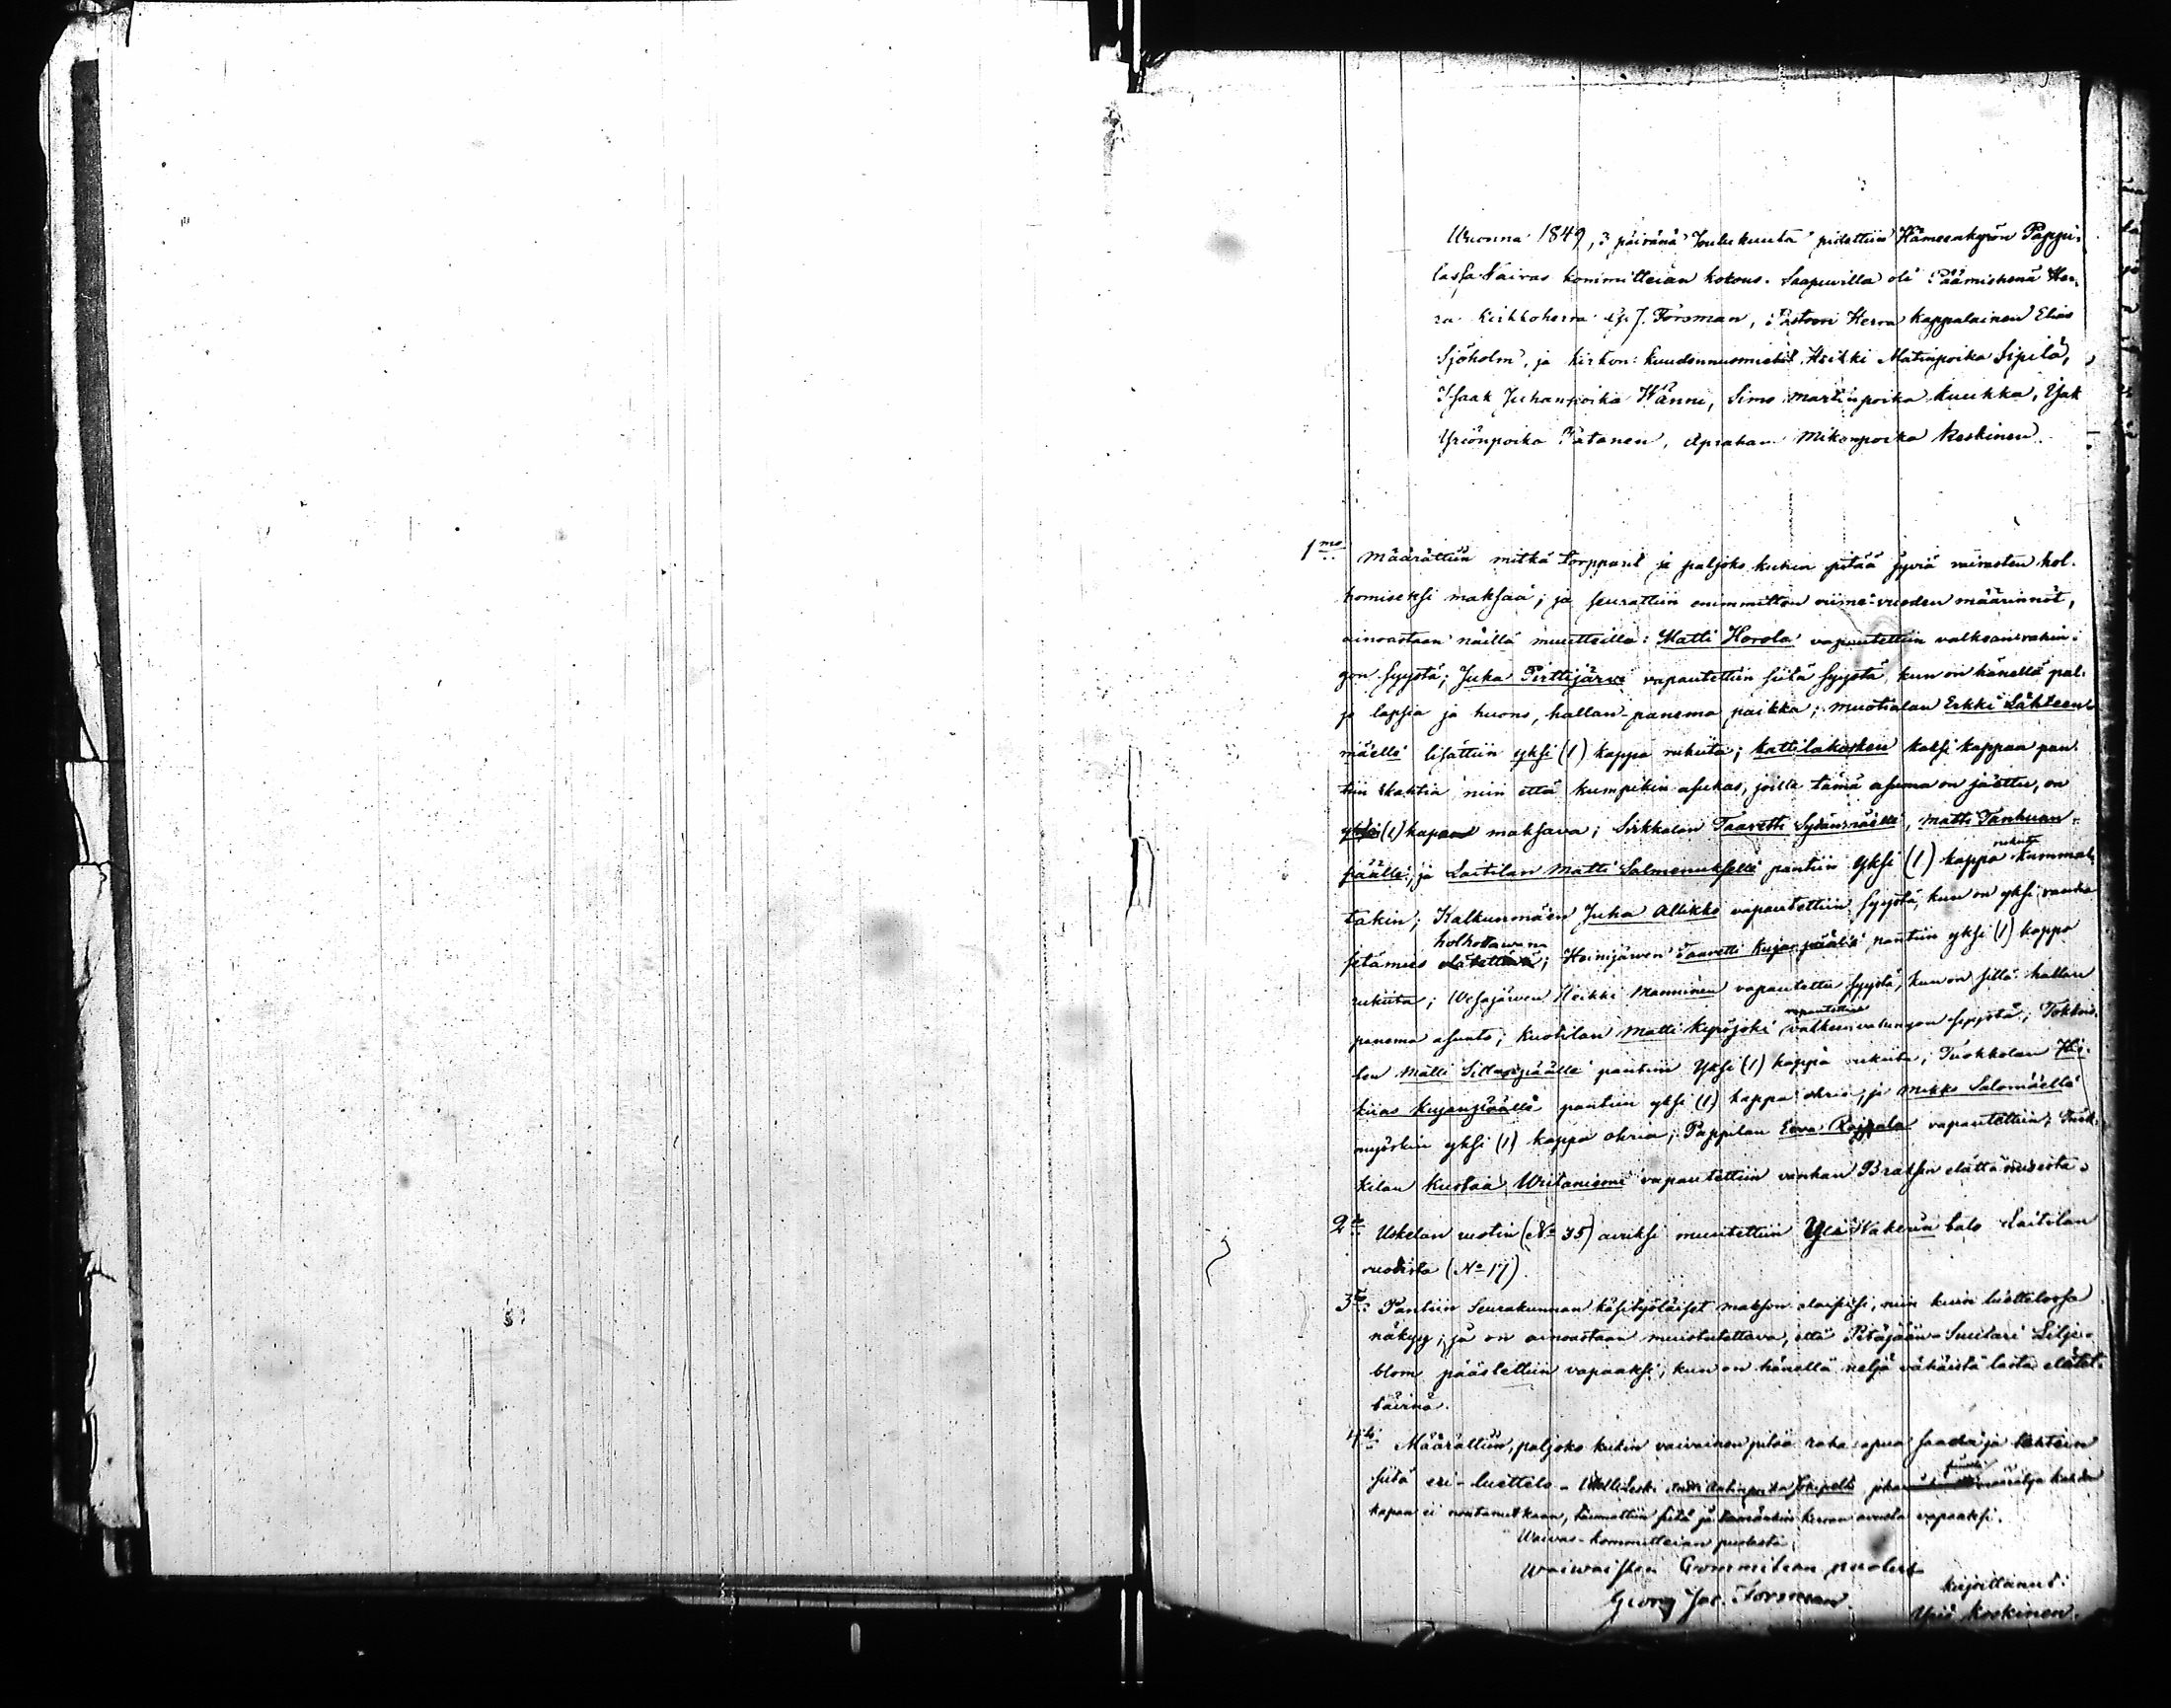 Wuonna 1849, 3 päivänä Joulukuuta pidettiin Hämeenkyrön Pappi-
lassa Vaivas kommitteian kokous. Saapuvilla oli Päämiehenä Her-
ra Kirkkoherra G. J. Forsman, Pastori Herra Kappalainen Elias
Sjöholm, ja kirkon kuudennusmiehet Heikki Matinpoika Sipilä,
Isaak Juhanpoika Hänni, Simo Martinpoika Kuukka, Isak
Yriönpoika Patanen, Apraham Mikonpoika Keskinen.
1mo Määrättiin mitkä torpparit ja paljoko kukin pitää jyviä vaivasten hol-
homiseksi maksaa; ja seurattiin enimmitten viime-vuoden määrinnöt,
ainoastaan näillä muutteilla: Matti Horola vapautettiin valkeanvahin-
gon syystä; Juha Perttijärvi vapautettiin siitä syystä, kun on hänellä pal-
jo lapsia ja huono, hallan-panema paikka; Muotialan Erkki Lähteen-
mäelle lisättiin yksi (1) kappa rukiita; Kattilakosken kaksi kappaa pan-
tiin kahtia niin että kumpikin asukas, joille tämä asuma on jaettu, on
yksi (1) kapan maksava; Sirkkalan Taavetti Sydänmäelle, Matti Tanhuan-
päälle, ja Laitilan Matti Salmenukselle pantiin yksi (1) kappa rukiita kummal-
takin; Kalkunmäen Juha Allikko vapautettiin syystä, kun on yksi vanha
setämies elätettävä holhottavana; Heinijärven Taavetti Kujanpäälle pantiin yksi (1) kappa
rukiita; Wesajärven Heikki Manninen vapautettu syystä, kun on sillä hallan
panema asunto; Kuotilan Matti Kyröjoki vapautettiin valkeanvahingon syystä; Tokkoi-
lan Matti Sillanpäälle pantiin yksi (1) kappa rukiita; Tuokkolan Hi-
kiias Kujanpäälle pantiin yksi (1) kappa ohria, ja Mikko Salomäelle
myöskin yksi (1) kappa ohria; Pappilan Eeva Rajjala vapautettiin;
kilan Kustaa vapautettiin vanhan elättämisestä.
2do Uskelan ruotin (No 35) avuksi muutettiin Yli talo Laitilan
ruodista (No 17).
3tio Pantiin Seurakunnan käsityöläiset maksun alaisiksi, niin kuin luettelossa
näkyy; ja on ainoastaan muistutettava, että Pitäjään-Suutari Lilje-
blom päästettiin vapaaksi, kun on hänellä neljä vähäistä lasta elätet-
tävinä.
4to Määrättiin, paljoko kukin vaivainen pitää raha-apua saada ja tehtiin
siitä eri-luettelo
kapan ei nostanutkaan, tuomittiin siitä ja vapaaksi.
Waivas-kommitteian puolesta
Waiwaisten Commitean puolest
Georg Jac. Forsman
kirjoittanut:
Yriö Koskinen.